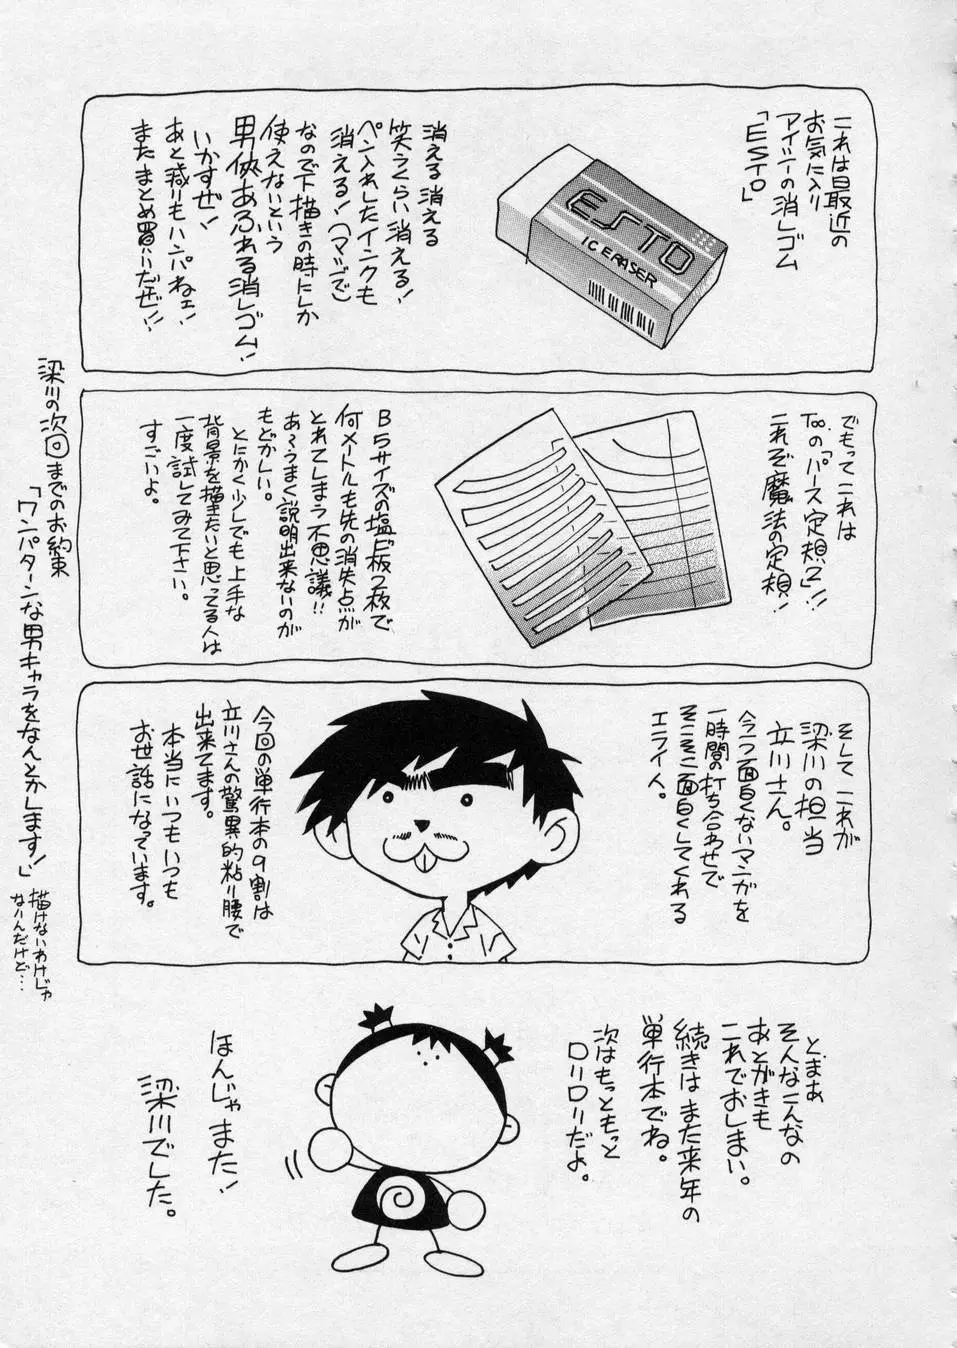 これは最近の
お気に入り
アイシーの消しゴム
「ESTO」
ESTO
IC ERASER
消える消える
笑うくらい消える!
ペン入れしたインクも
消える!(マジで)
なので下描きの時にしか
使えないという
男侠あふれる消しゴム!
いかすぜ!
あと減りもハンパねェ!
またまとめ買いだぜ!!
でもってこれは
Tooの「パース定規2」!!
これぞ魔法の定規!
B5サイズの塩ビ板2枚で
何メートルも先の消失点が
とれてしまう不思議!!
あ〜うまく説明出来ないのが
もどかしい。
とにかく少しでも上手な
背景を描きたいと思ってる人は
一度試してみて下さい。
すごいよ。
そしてこれが
梁川の担当
立川さん。
今一つ面白くないマンガを
一時間の打ち合わせで
そこそこ面白くしてくれる
エライ人。
今回の単行本の9割は
立川さんの驚異的粘り腰で
出来てます。
本当にいつもいつも
お世話になっています。
とまあ
そんなこんなの
あとがきも
これでおしまい。
続きはまた来年の
単行本でね。
次はもっともっと
ロリロリだよ。
ほんじゃまた!
梁川でした。
梁川の次回までのお約束
「ワンパターンな男キャラをなんとかします!」
描けないわけじゃ
ないんだけど…